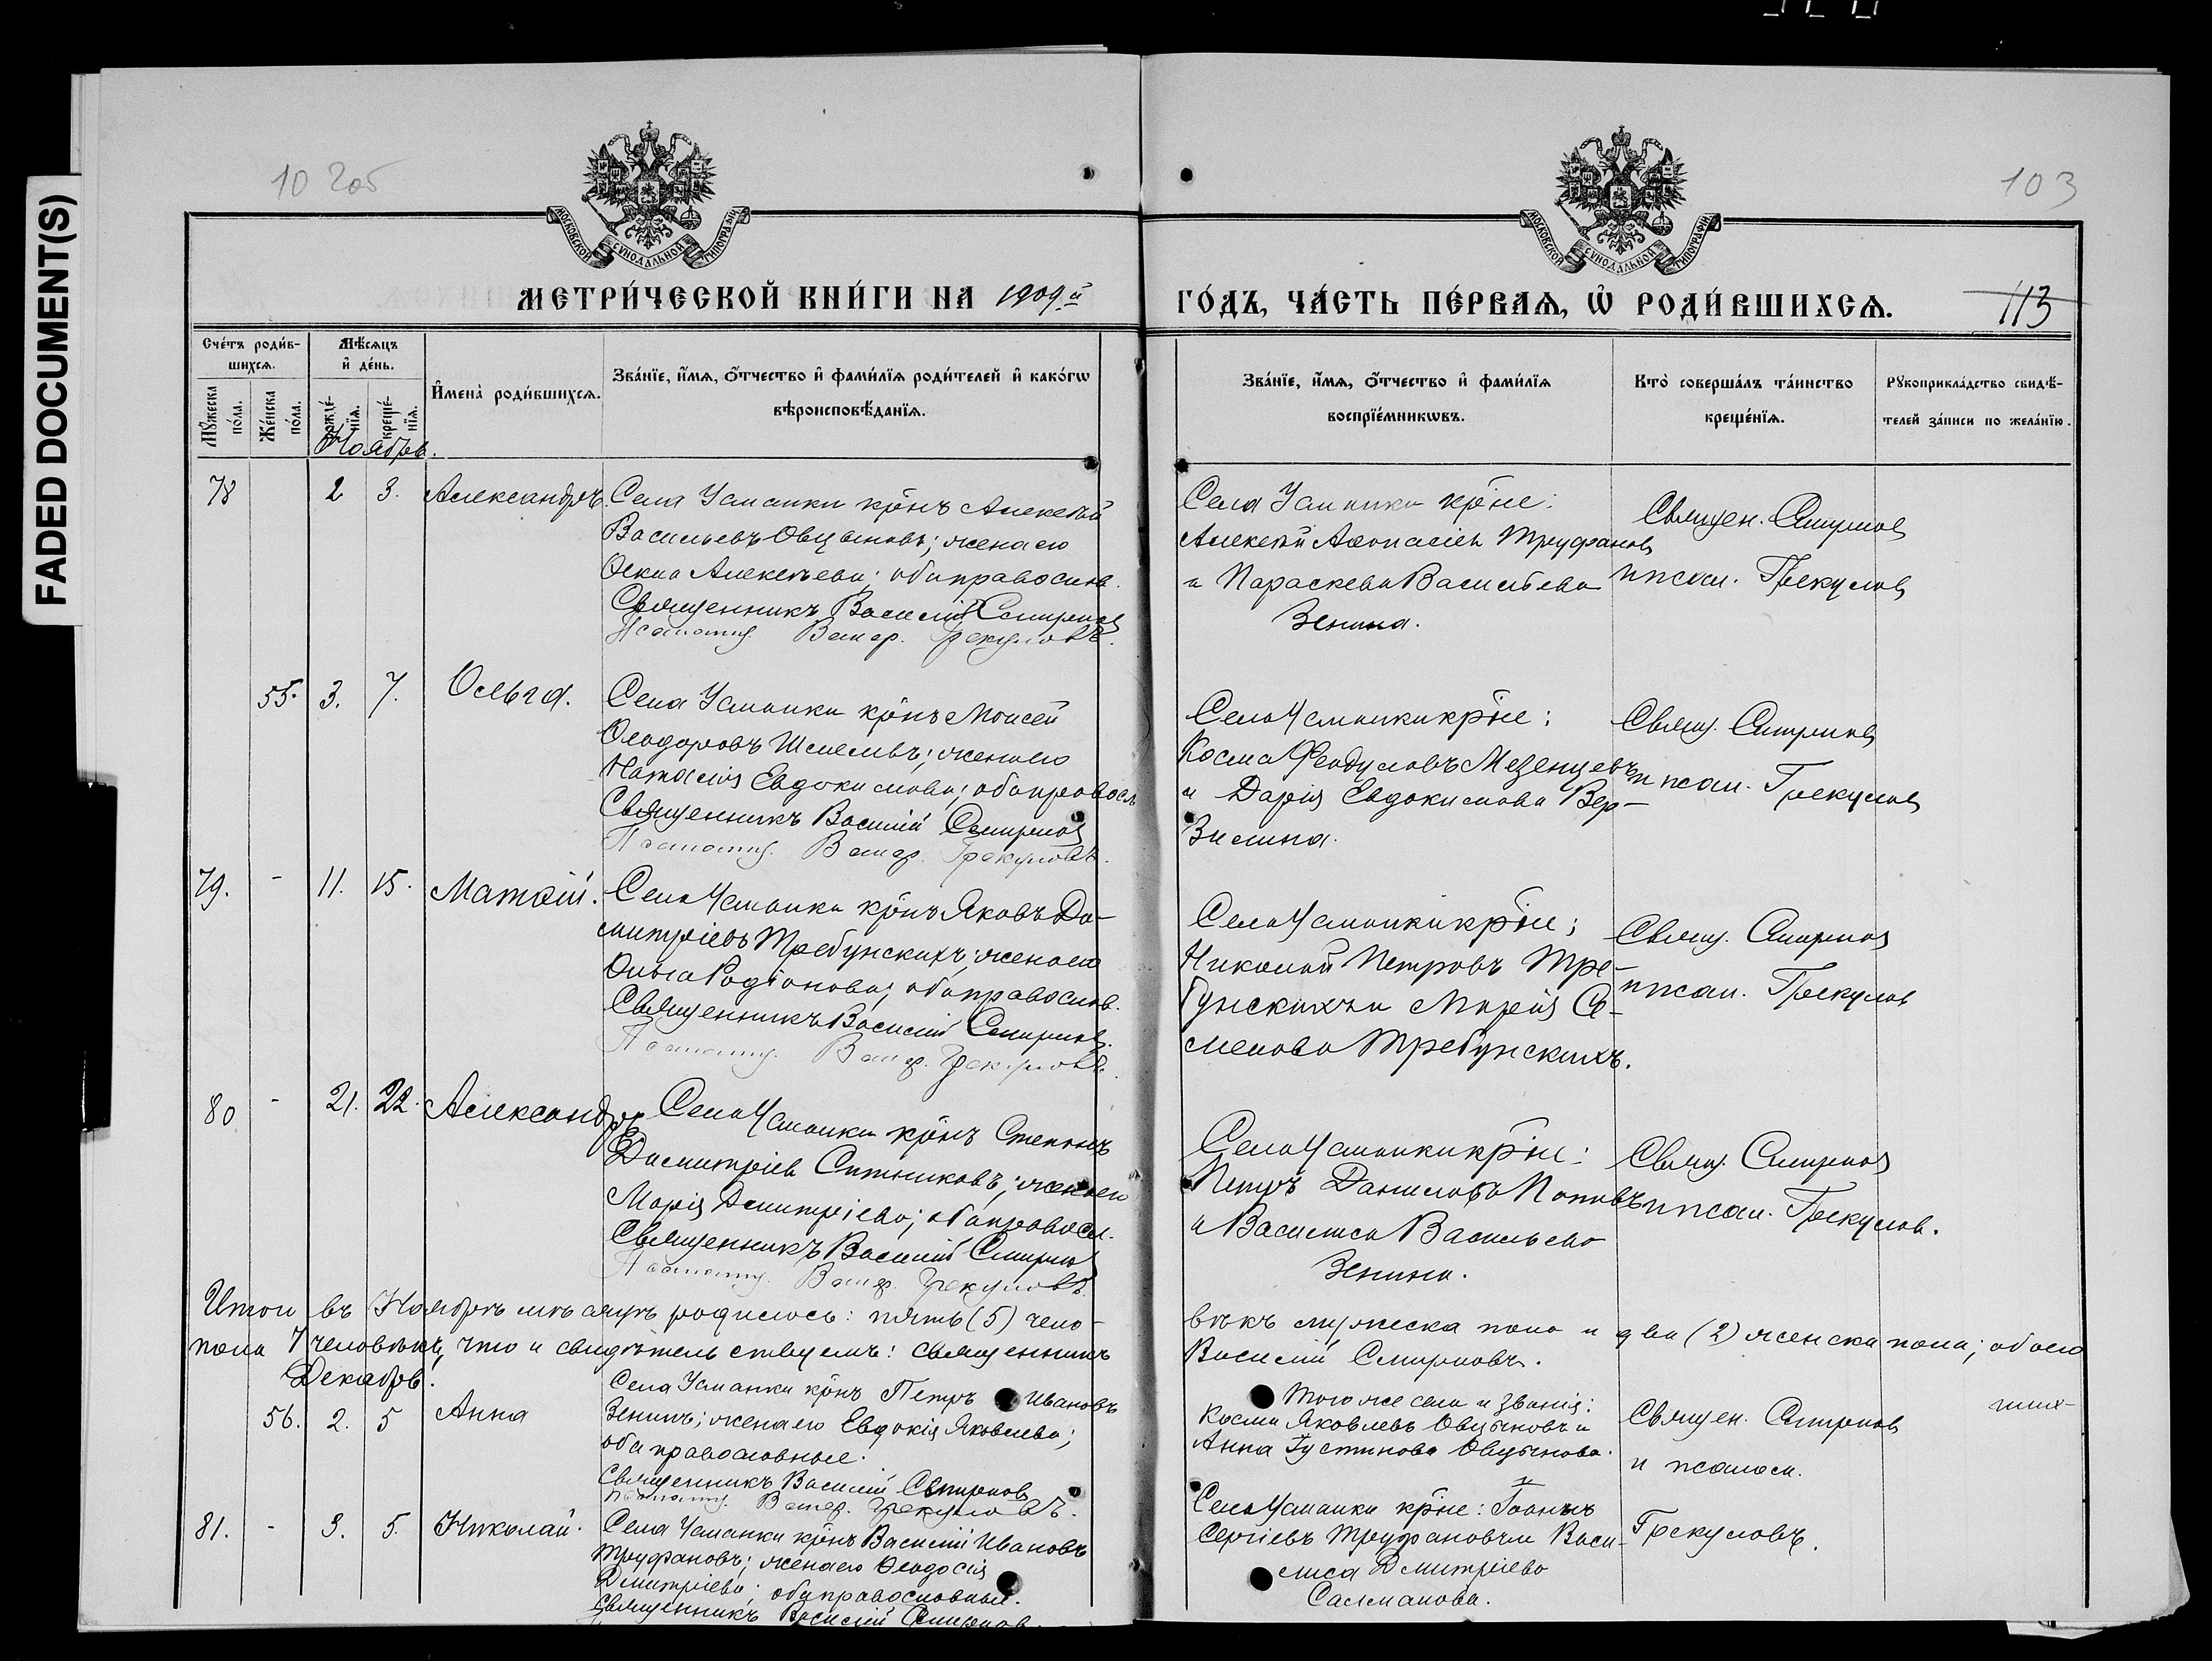 FADED DOCUMENT(S)
10 2об
103
МОСКОВСКОЙ СУНОДАЛЬНОЙ ТИПОГРАФІИ
МОСКОВСКОЙ СУНОДАЛЬНОЙ ТИПОГРАФІИ
МЕТРИ́ЧЕСКОЙ КНИ́ГИ НА 1909й
ГО́ДЪ, ЧА́СТЬ ПЕ́РВАѦ, Ѡ РОДИ́ВШИХСѦ.
113
Сче́тъ роди́в-
шихсѧ.
Му́жеска по́ла.
Же́нска по́ла.
Мѣ́сѧцъ
и҆ де́нь.
рожде́-
нїѧ.
креще́-
нїѧ.
И҆мена̀ роди́вшихсѧ.
Зва́нїе, и҆́мѧ, ѻ҆́тчество и҆ фами́лїѧ роди́телей и҆ како́гѡ
вѣроисповѣ́данїѧ.
Зва́нїе, и҆́мѧ, ѻ҆́тчество и҆ фами́лїѧ
воспрїе́мникѡвъ.
Кто̀ соверша́лъ та́инство
креще́нїѧ.
Рꙋкоприкла́дство свидѣ́-
телей за́писи по жела́нїю.
Ноябрь.
78 2 3. Александръ.
Села Усманки кр̃нъ Алексѣй
Васильевъ Овцыновъ; жена его
Ѳекла Алексѣева; оба правосл.
Священникъ Василій Смирновъ
Псаломщ. Грекуловъ.
Села Усманки кр̃не:
Алексѣй Аѳонасіев Труфановъ
и Параскева Васильева
Зенина.
Священ. Смирновъ
и псал. Грекуловъ
55. 3. 7. Ольга.
Села Усманки кр̃нъ Моисей
Ѳеодоровъ Шмелевъ; жена его
Наталія Евдокимова; оба правосл
Священникъ Василій Смирновъ
Псаломщ. Грекуловъ.
Села Усманки кр̃не:
Косма Феодуловъ Мезенцевъ
и Дарія Евдокимова Вер-
зилина.
Свящ. Смирновъ
и псал. Грекуловъ
79. - 11. 15. Матѳій.
Села Усманки кр̃нъ Яковъ Ди-
митріевъ Требунскихъ; жена его
Ольга Родіонова; оба правослов.
Священникъ Василій Смирновъ.
Псаломщ. Грекуловъ.
Села Усманки кр̃не;
Николай Петровъ Тре-
бунскихъ и Марія Се-
менова Требунскихъ.
Свящ. Смирновъ
и псал. Грекулов
80 - 21. 22. Александръ
Села Усманки кр̃нъ Стефанъ
Димитріев Ситниковъ; жена его
Марія Димитріева; оба правосл.
Священникъ Василій Смирновъ
Псаломщ. Грекуловъ.
Села Усманки кр̃не:
Петръ Даниловъ Поповъ
и Василиса Васильева
Зенина.
Свящ. Смирновъ
и псал. Грекулов.
Итого въ Ноябрѣ мѣсяцѣ родилось: пять (5) чело-
вѣкъ мужеска пола и два (2) женска пола; обоего
пола 7 человѣкъ, что и свидѣтельствуемъ: священникъ
Василій Смирновъ.
Декабрь.
56. 2. 5 Анна
Села Усманки кр̃нъ Петръ Ивановъ
Зенинъ; жена его Евдокія Яковлева;
оба православные.
Священникъ Василій Смирновъ
Псаломщ. Грекуловъ.
Того же села и званія:
Косма Яковлевъ Овцыновъ и
Анна Густинова Овцынова.
Священ. Смирновъ
и псалом.
81. - 3. 5. Николай.
Села Усманки кр̃нъ Василій Ивановъ
Труфановъ; жена его Ѳеодосія
Димитріева; оба православные.
Священникъ Василій Смирновъ.
Села Усманки кр̃не: Іоаннъ
Сергіевъ Труфановъ и Васи-
лиса Димитріева
Салманова.
Грекуловъ.